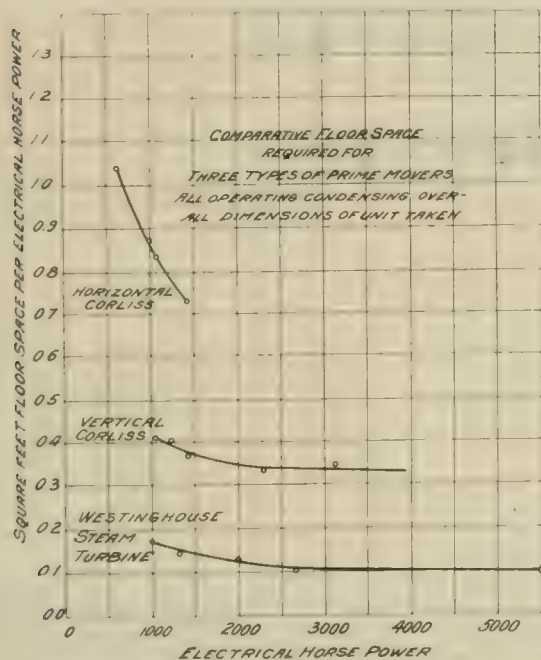 SQUARE FEET FLOOR SPACE PER ELECTRICAL HORSE POWER
1.3
1.2
1.1
1.0
0.9
0.8
0.7
0.6
0.5
0.4
0.3
0.2
0.1
0.0
COMPARATIVE FLOOR SPACE
REQUIRED FOR
THREE TYPES OF PRIME MOVERS
ALL OPERATING CONDENSING OVER-
ALL DIMENSIONS OF UNIT TAKEN
HORIZONTAL
CORLISS
VERTICAL
CORLISS
WESTINGHOUSE
STEAM
TURBINE
0 1000 2000 3000 4000 5000
ELECTRICAL HORSE POWER